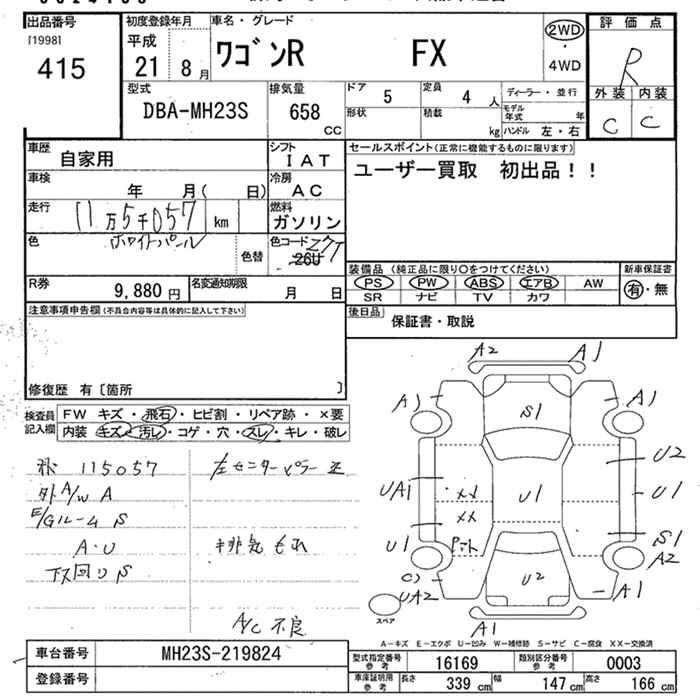 出品番号
[1998]
415
初度登録年月
平成
21 8 月
車名・グレード
ワゴンR FX
2WD
4WD
評価点
R
外装 内装
C C
型式
DBA-MH23S
排気量
658
CC
ドア
5
定員
4 人
形状
積載
kg
ディーラー・並行
モデル年式 年
ハンドル 左・右
車歴
自家用
シフト
IAT
車検
年 月( 日)
冷房
AC
走行
11万5千057 km
燃料
ガソリン
色
ホワイトパール
色替
色コード
26U
ZVT
R券
9,880 円
名変通知期限
月 日
セールスポイント(正常に機能するものに限ります)
ユーザー買取 初出品!!
装備品(純正品に限り○をつけてください)
PS PW ABS エアB AW
SR ナビ TV カワ
新車保証書
有・無
後日品
保証書・取説
注意事項申告欄(不具合内容等は具体的に記入して下さい)
修復歴 有〔箇所 〕
検査員
記入欄
FW キズ・飛石・ヒビ割・リペア跡・×要
内装 キズ・汚レ・コゲ・穴・スレ・キレ・破レ
115057
左センターピラー
外A/W A
E/Gルーム S
A・U
排気もれ
下回り S
A/C 不良
A2 A1
A1 S1 A1
U2
UA1 U1 U1
××
××
U1 S1
A2
U2
UA2 A1
スペア
A1
A-キズ E-エクボ U-凹み W-補修跡 S-サビ C-腐食 XX-交換済
車台番号
MH23S-219824
登録番号
型式指定番号
参考
16169
類別区分番号
参考
0003
車庫証明用
参考
長さ 339 cm 幅 147 cm 高さ 166 cm